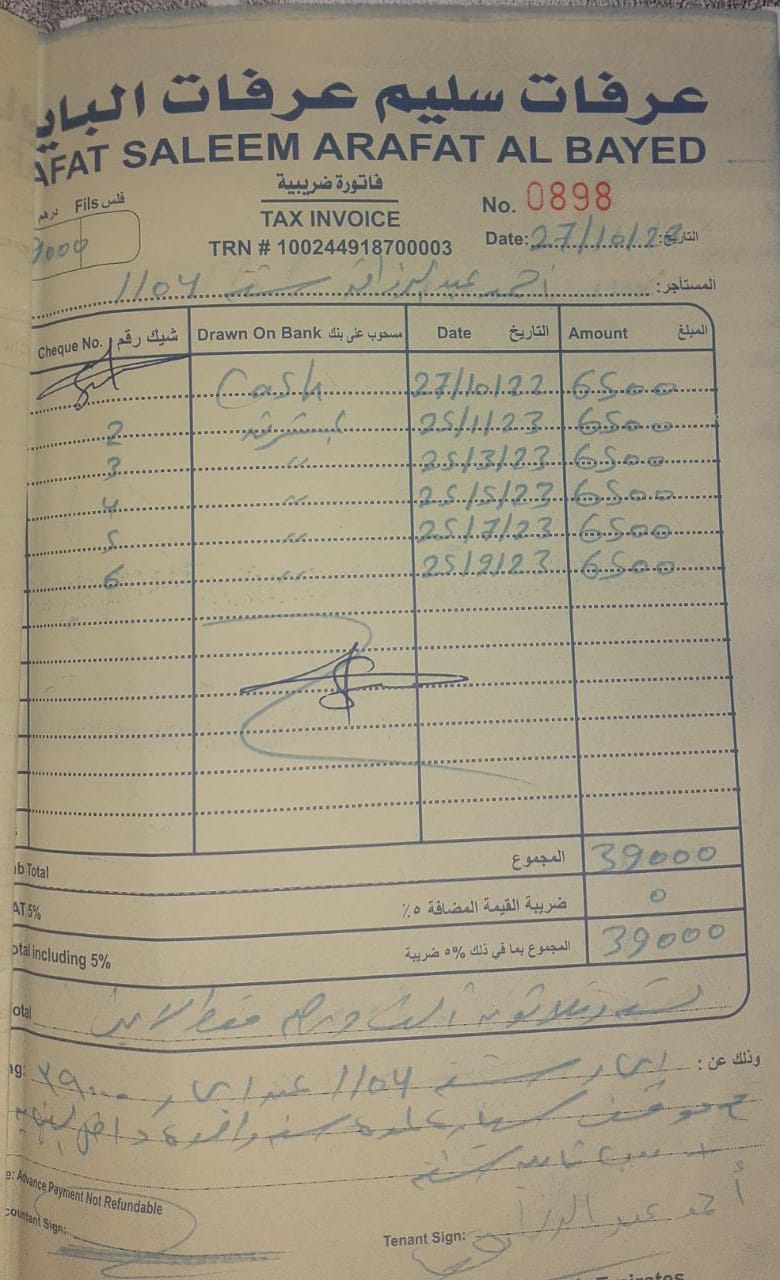 عرفات سليم عرفات
AFAT SALEEM ARAFAT AL BAYED
فاتورة ضريبية
TAX INVOICE
TRN # 100244918700003
درهم Fils فلس
9000
No. 0898
Date: 27/10/22 التاريخ:
المستأجر: أحمد عبد الرزاق شقة 1104
Cheque No. شيك رقم Drawn On Bank مسحوب على بنك Date التاريخ Amount المبلغ
Cash 27/10/22 6500
2 25/1/23 6500
3 " 25/3/23 6500
4 " 25/5/23 6500
5 " 25/7/23 6500
6 " 25/9/23 6500
b Total المجموع 39000
AT 5% ضريبة القيمة المضافة ٥٪ 0
otal including 5% المجموع بما في ذلك ٥% ضريبة 39000
otal وثلاثون درهم فقط
ng: وذلك عن: ايجار شقة 1104 ٣٩٠٠٠
موقف سيارة لمدة سنة واحدة داخل
+ شقة
e: Advance Payment Not Refundable
countant Sign:
Tenant Sign: أحمد عبد الرزاق
Emirates